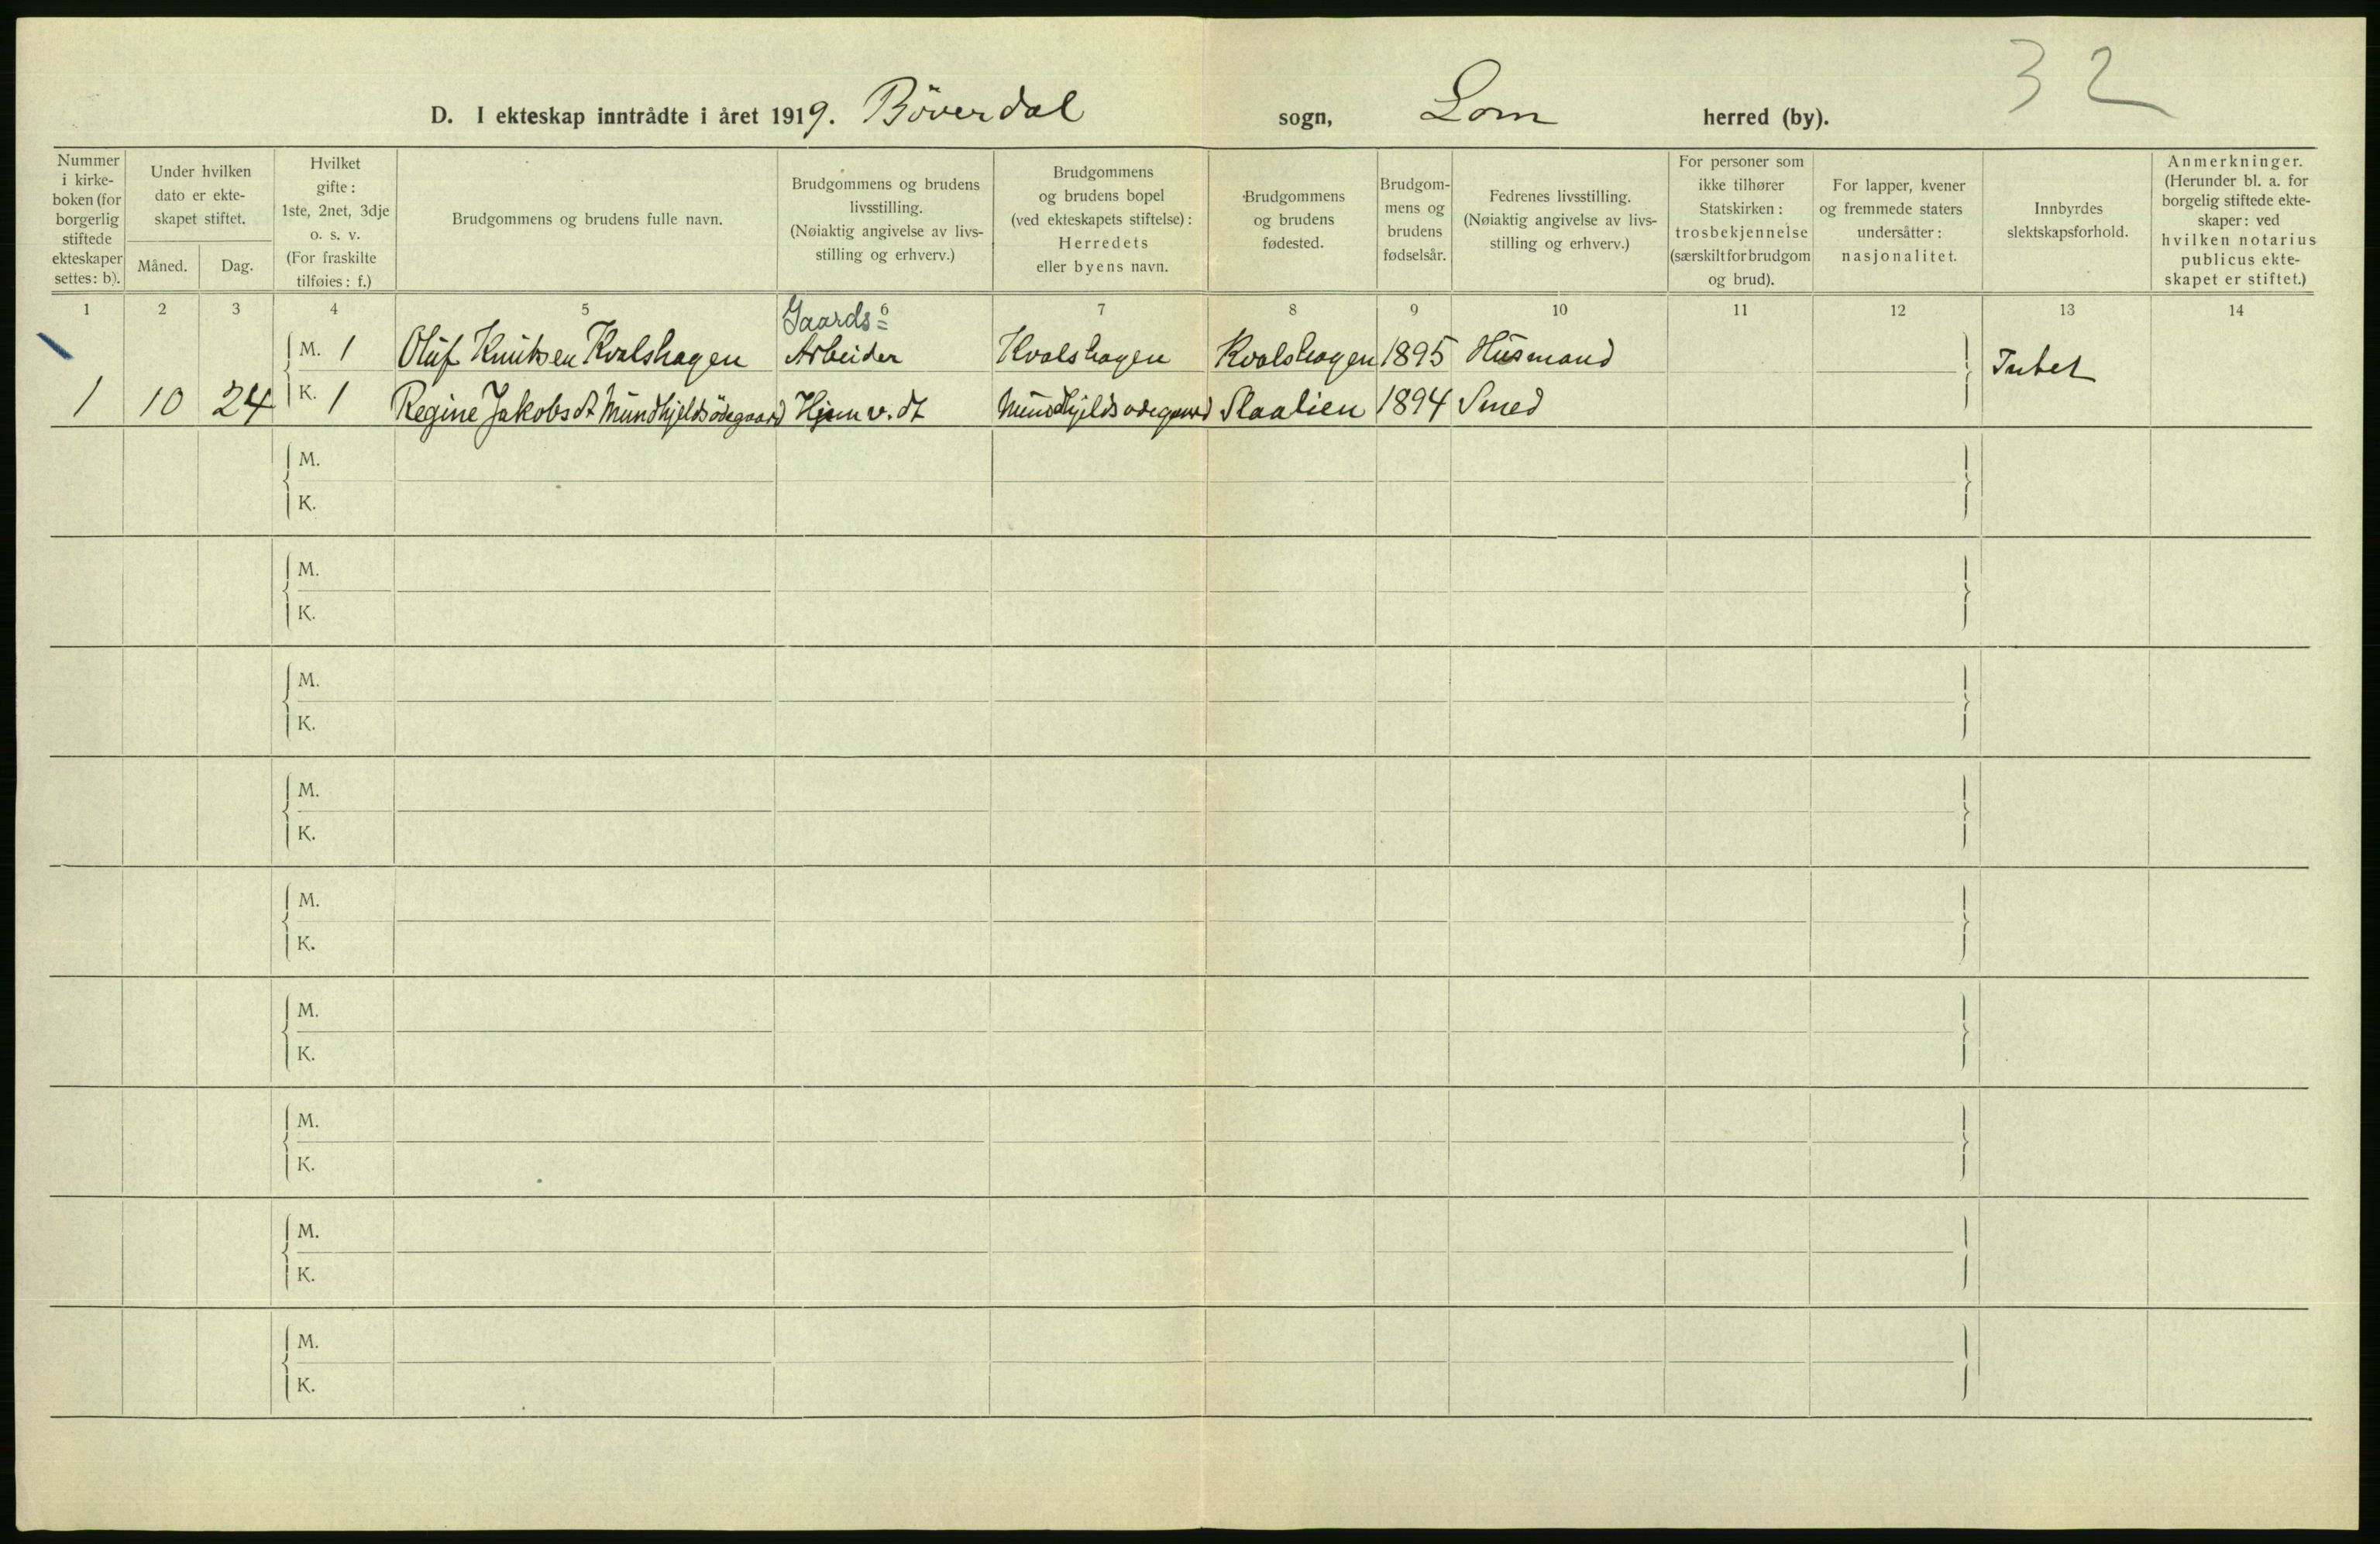 32
D. I ekteskap inntrådte i året 1919. Böverdal sogn, Lom herred (by).
Nummer i kirkeboken (for borgerlig stiftede ekteskaper settes: b).
Under hvilken dato er ekteskapet stiftet.
Måned. Dag.
Hvilket gifte: 1ste, 2net, 3dje o. s. v. (For fraskilte tilføies: f.)
Brudgommens og brudens fulle navn.
Brudgommens og brudens livsstilling. (Nøiaktig angivelse av livsstilling og erhverv.)
Brudgommens og brudens bopel (ved ekteskapets stiftelse): Herredets eller byens navn.
Brudgommens og brudens fødested.
Brudgommens og brudens fødselsår.
Fedrenes livsstilling. (Nøiaktig angivelse av livsstilling og erhverv.)
For personer som ikke tilhører Statskirken: trosbekjennelse (særskilt for brudgom og brud).
For lapper, kvener og fremmede staters undersåtter: nasjonalitet.
Innbyrdes slektskapsforhold.
Anmerkninger. (Herunder bl. a. for borgelig stiftede ekteskaper: ved hvilken notarius publicus ekteskapet er stiftet.)
1 2 3 4 5 6 7 8 9 10 11 12 13 14
Gaards=
M. 1 Oluf Knutsen Kvalshagen Arbeider Kvalshagen Kvalshagen 1895 Husmand Intet
1 10 24 K. 1 Regine Jakobsdt Mundhjeldsödegaard Hjem v. dt Mundhjeldsödegaard Slaalien 1894 Smed
M.
K.
M.
K.
M.
K.
M.
K.
M.
K.
M.
K.
M.
K.
M.
K.
M.
K.